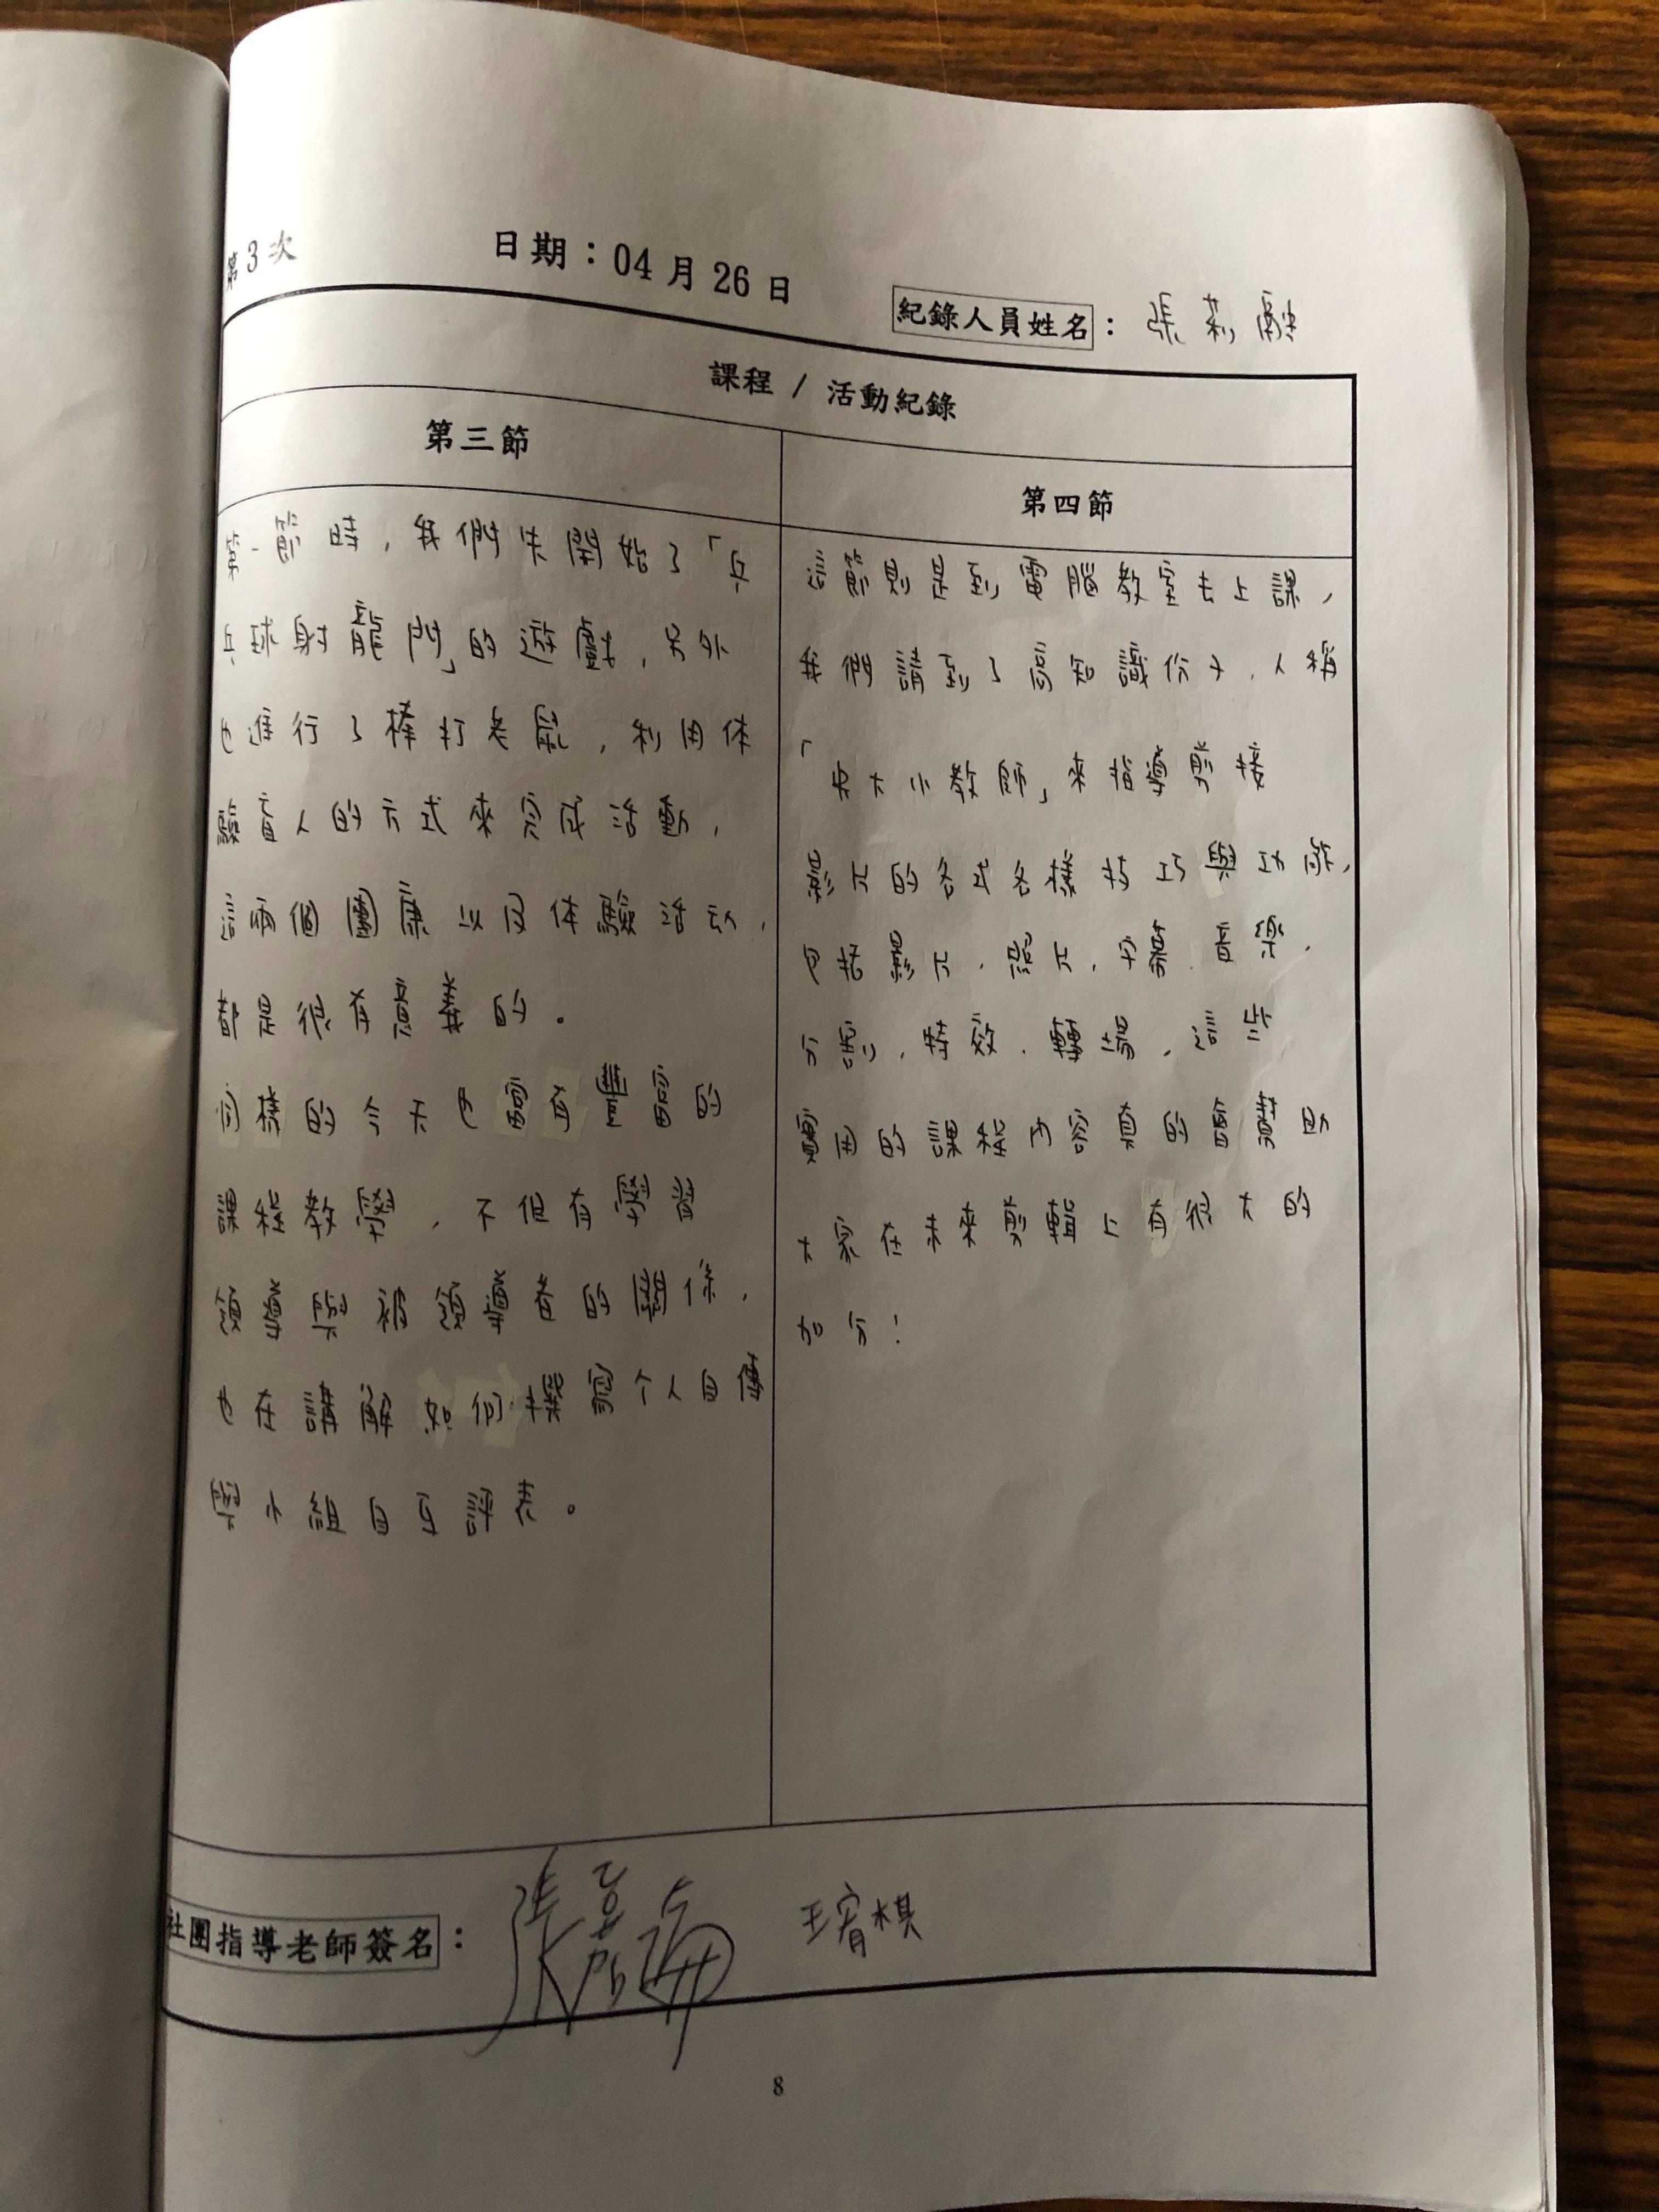 第3次
日期：04月26日
紀錄人員姓名：張莉融
課程 / 活動紀錄
第三節
第一節時，我們先開始了「乒
乓球射龍門」的遊戲，另外
也進行了棒打老鼠，利用体
驗盲人的方式來完成活動，
這兩個團康以及体驗活动，
都是很有意義的。
同樣的今天也富有豐富的
課程教學，不但有學習
領導與被領導者的關係，
也在講解如何撰寫个人自傳
與小組自互評表。
第四節
這節則是到電腦教室去上課，
我們請到了高知識份子，人稱
「央大小教師」來指導剪接
影片的各式各樣技巧與功能，
包括影片、照片、字幕、音樂、
分割、特效、轉場，這些
實用的課程內容真的會幫助
大家在未來剪輯上有很大的
加分！
社團指導老師簽名：張嘉 王宥棋
8